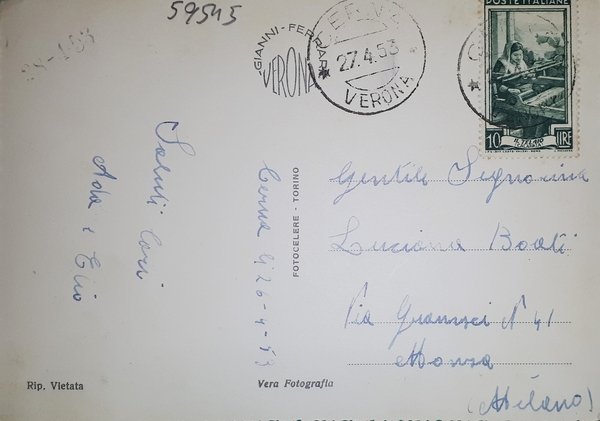 59545
GIANNI-FERRARI
VERONA
27.4.53
VERONA
POSTE ITALIANE
10 LIRE
Saluti Cari
Ada e Clio
Cerna li 26-4-53
FOTOCELERE - TORINO
Gentile Signorina
Luciana Boati
Via Gramsci N 41
Monza
(Milano)
Rip. Vietata
Vera Fotografia